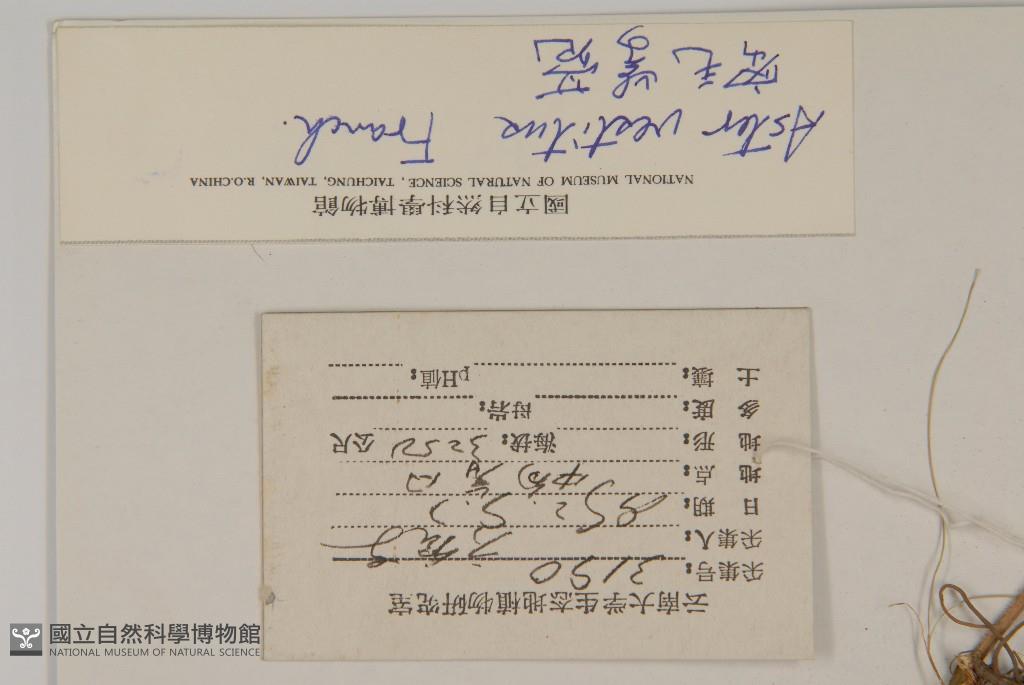 國立自然科學博物館
NATIONAL MUSEUM OF NATURAL SCIENCE, TAICHUNG, TAIWAN, R.O.CHINA
Aster vestitus Franch.
密毛紫菀
云南大学生态地植物研究室
采集号: 3150
采集人:
日 期:
地 点: 中甸
地 形: 海拔: 3250 公尺
多 度: 母岩:
土 壤: pH值:
國立自然科學博物館
NATIONAL MUSEUM OF NATURAL SCIENCE